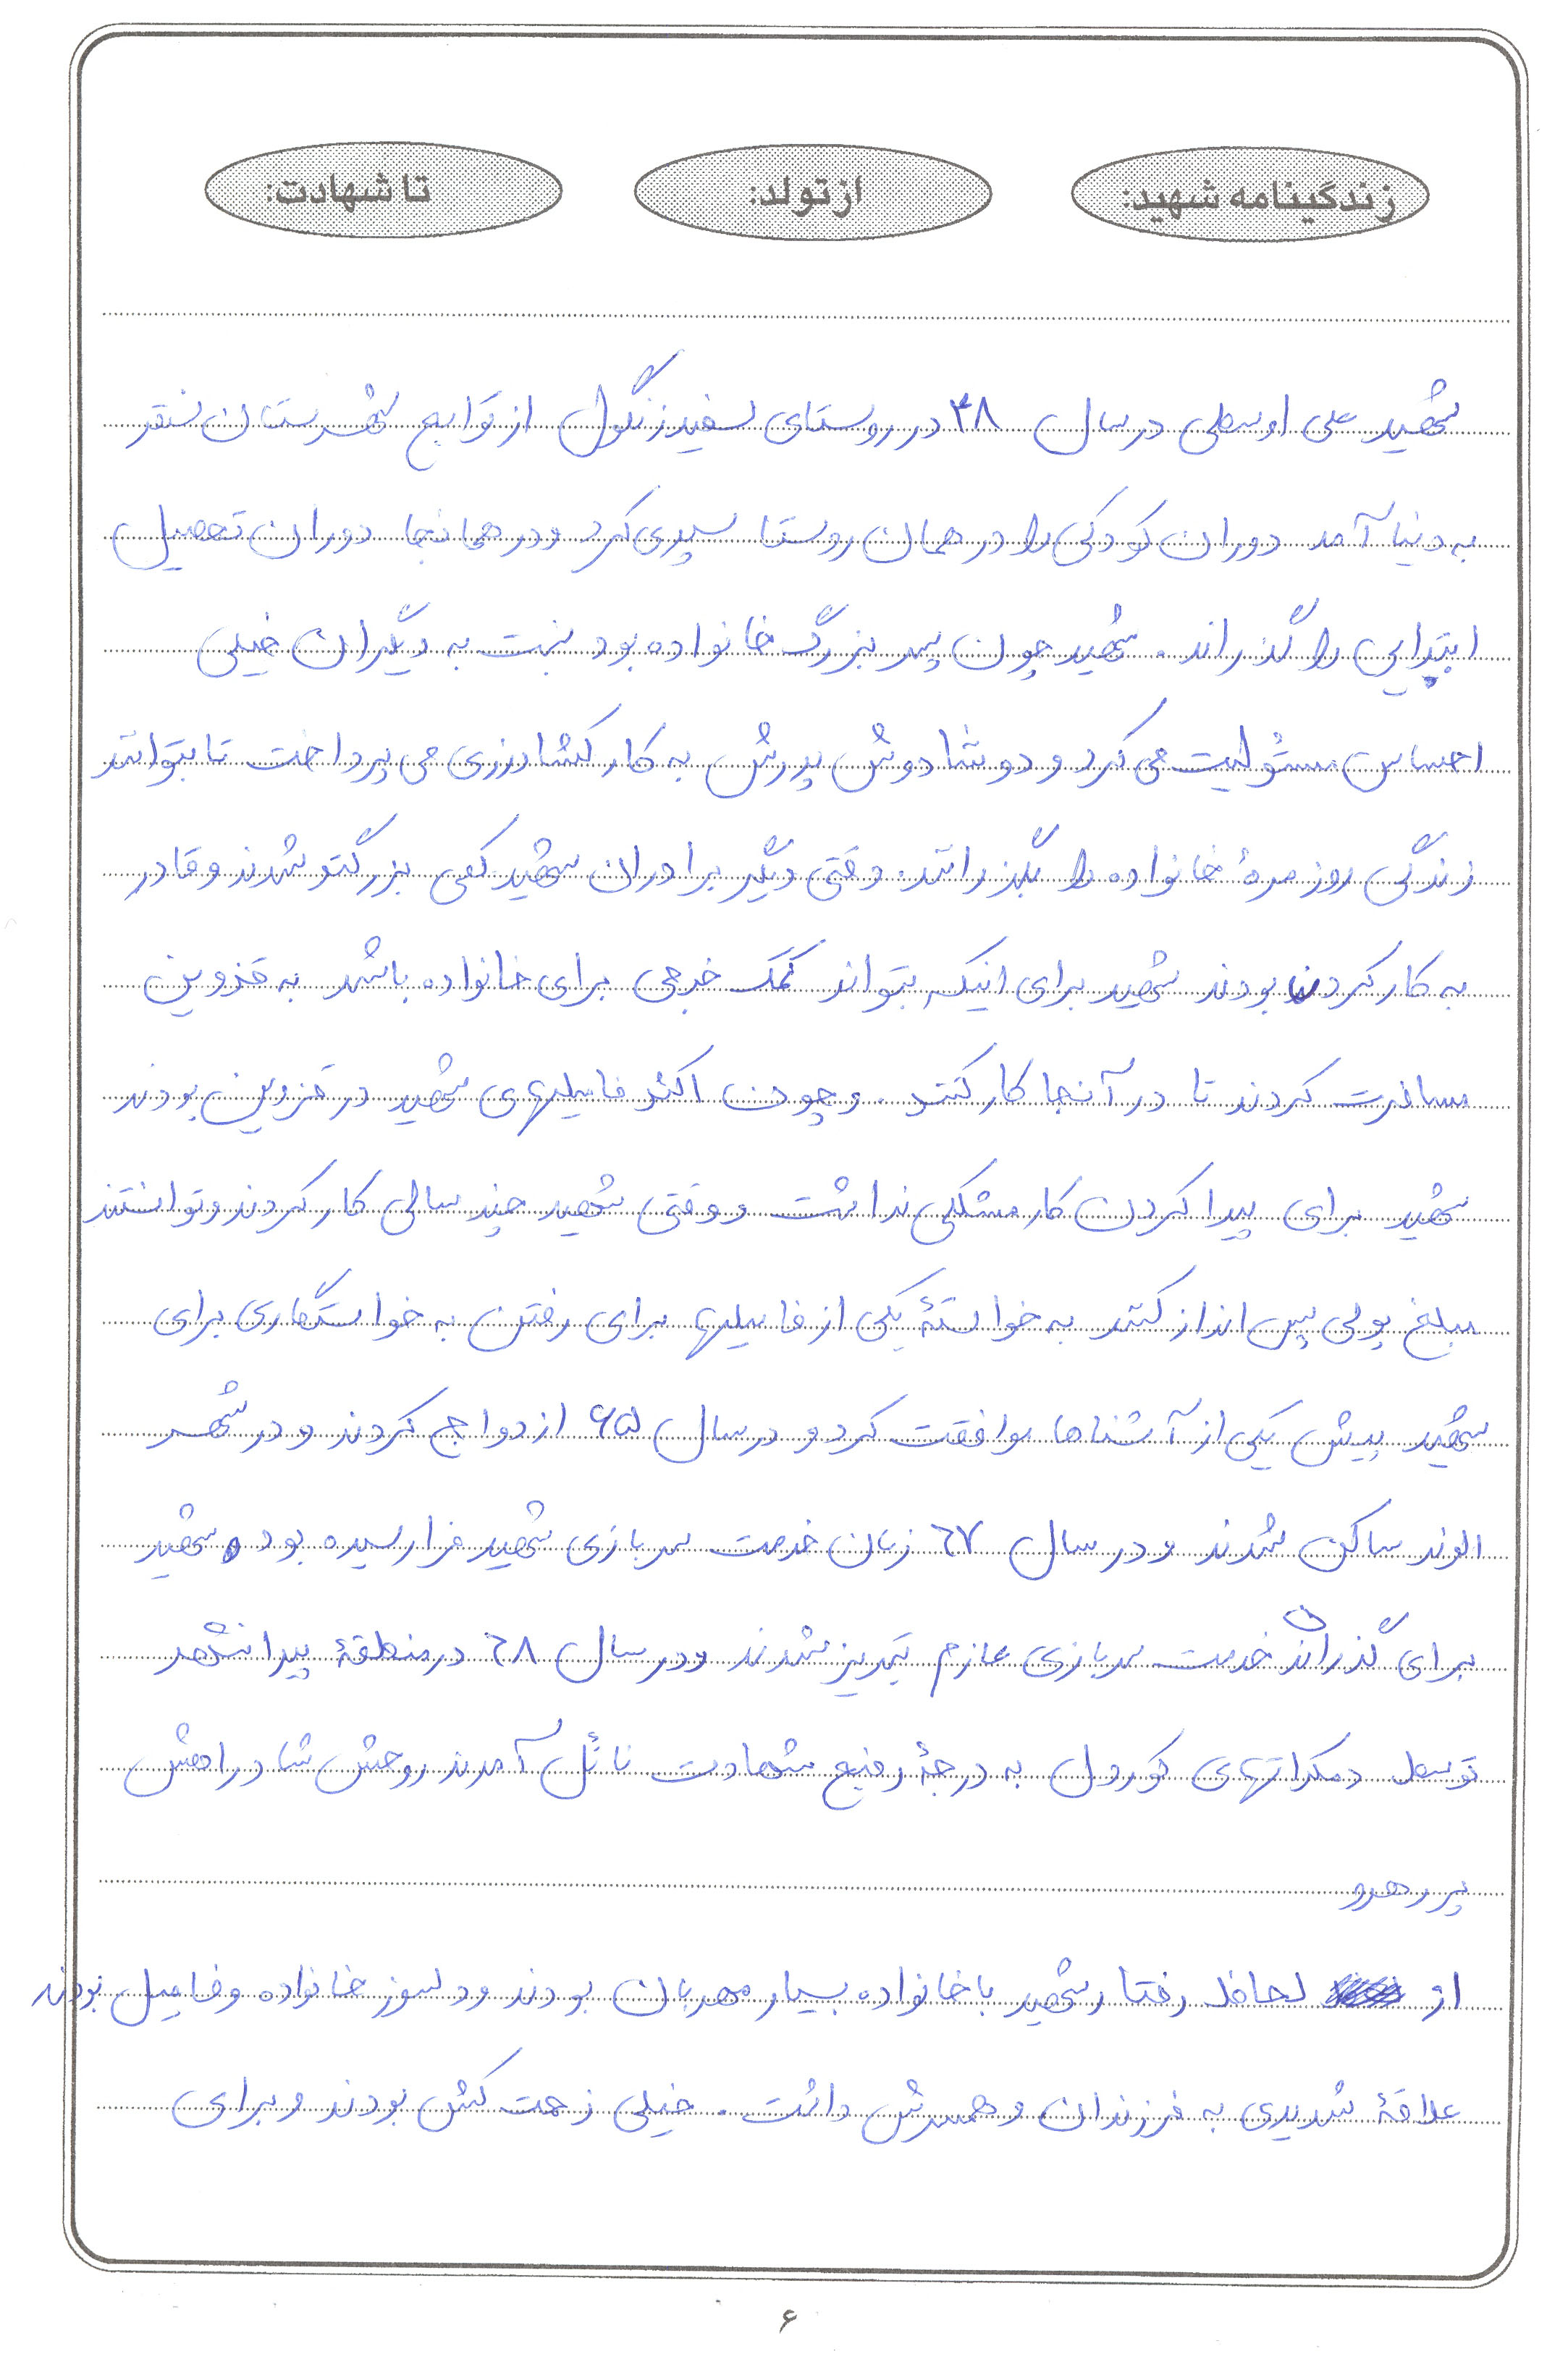 زندگینامه شهید: از تولد: تا شهادت:
شهید علی اوسطی در سال ۴۸ در روستای سفید زنگول از توابع شهرستان سنقر
به دنیا آمد دوران کودکی را در همان روستا سپری کرد و در همانجا دوران تحصیل
ابتدایی را گذراند. شهید چون پسر بزرگ خانواده بود نسبت به دیگران خیلی
احساس مسئولیت می کرد و دوشادوش پدرش به کار کشاورزی می پرداخت تا بتوانند
زندگی روزمرهٔ خانواده را بگذرانند. وقتی دیگر برادران شهید کمی بزرگتو شدند و قادر
به کار کردن بودند شهید برای اینکه بتواند کمک خرجی برای خانواده باشد به قزوین
مسافرت کردند تا در آنجا کار کنند. و چون اکثر فامیلهای شهید در قزوین بودند
شهید برای پیدا کردن کار مشکلی نداشت و وقتی شهید چند سالی کار کردند و توانستند
مبلغ پولی پس انداز کنند به خواستهٔ یکی از فامیلها برای رفتن به خواستگاری برای
شهید پیش یکی از آشناها موافقت کرد و در سال ۶۵ ازدواج کردند و در شهر
الوند ساکن شدند و در سال ٦٧ زمان خدمت سربازی شهید فرارسیده بود. شهید
برای گذراندن خدمت سربازی عازم تبریز شدند و در سال ٦٨ در منطقهٔ پیرانشهر
توسط دمکراتهای کوردل به درجهٔ رفیع شهادت نائل آمدند روحش شاد راهش
پر رهرو
از لحاظ رفتار شهید با خانواده بسیار مهربان بودند و دلسوز خانواده و فامیل بودند
علاقهٔ شدیدی به فرزندان و همسرش داشت. خیلی زحمت کش بودند و برای
۶